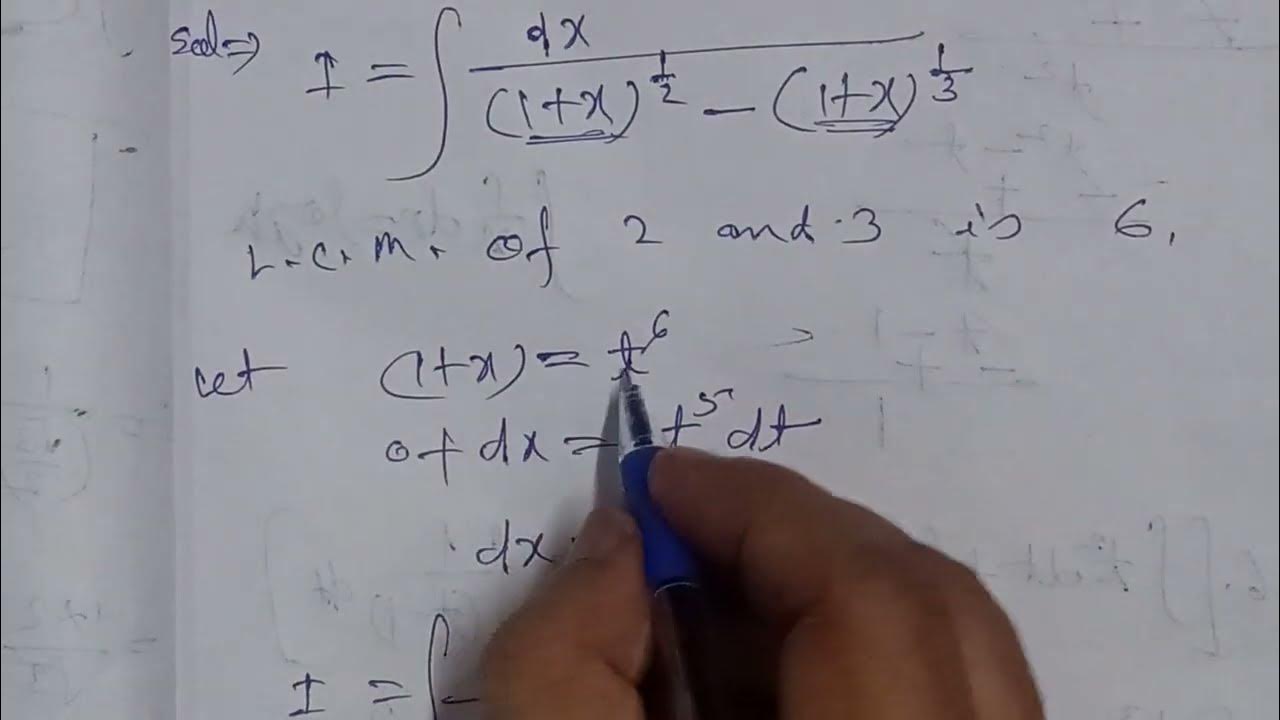 Sol⇒ I = ∫ dx / (1+x)^1/2 − (1+x)^1/3
L.C.M. of 2 and 3 is 6.
Let (1+x) = t^6
0+dx = t^5 dt
dx
I = ∫